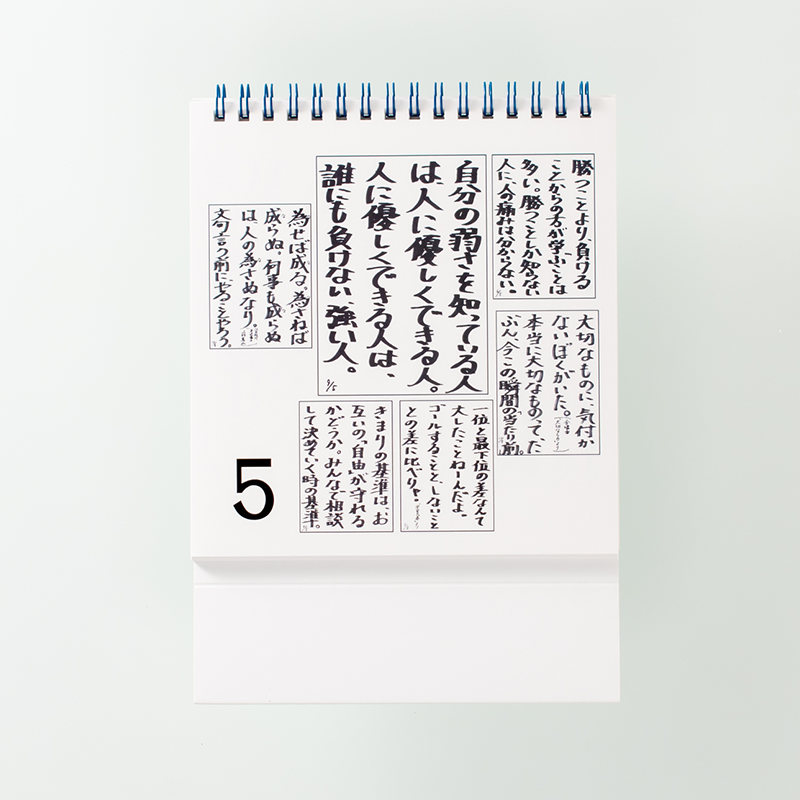 勝つことより、負ける
ことからの方が学ぶことは
多い。勝つことしか知らない
人に、人の痛みは分からない。
自分の弱さを知っている人
は、人に優しくできる人。
人に優しくできる人は、
誰にも負けない、強い人。
3/5
為せば成る。為さねば
成らぬ。何事も成らぬ
は、人の為さぬなり。
文句言う前にやることやろう。
大切なものに、気付か
ないぼくがいた。
本当に大切なものって、た
ぶん、今この瞬間の「当たり前」。
一位と最下位の差なんて
大したことねーんだよ。
ゴールすることと、しないこと
との差に比べりゃ。
きまりの基準は、お
互いの「自由」が守れる
かどうか。みんなで相談
して決めていく時の基準。
5